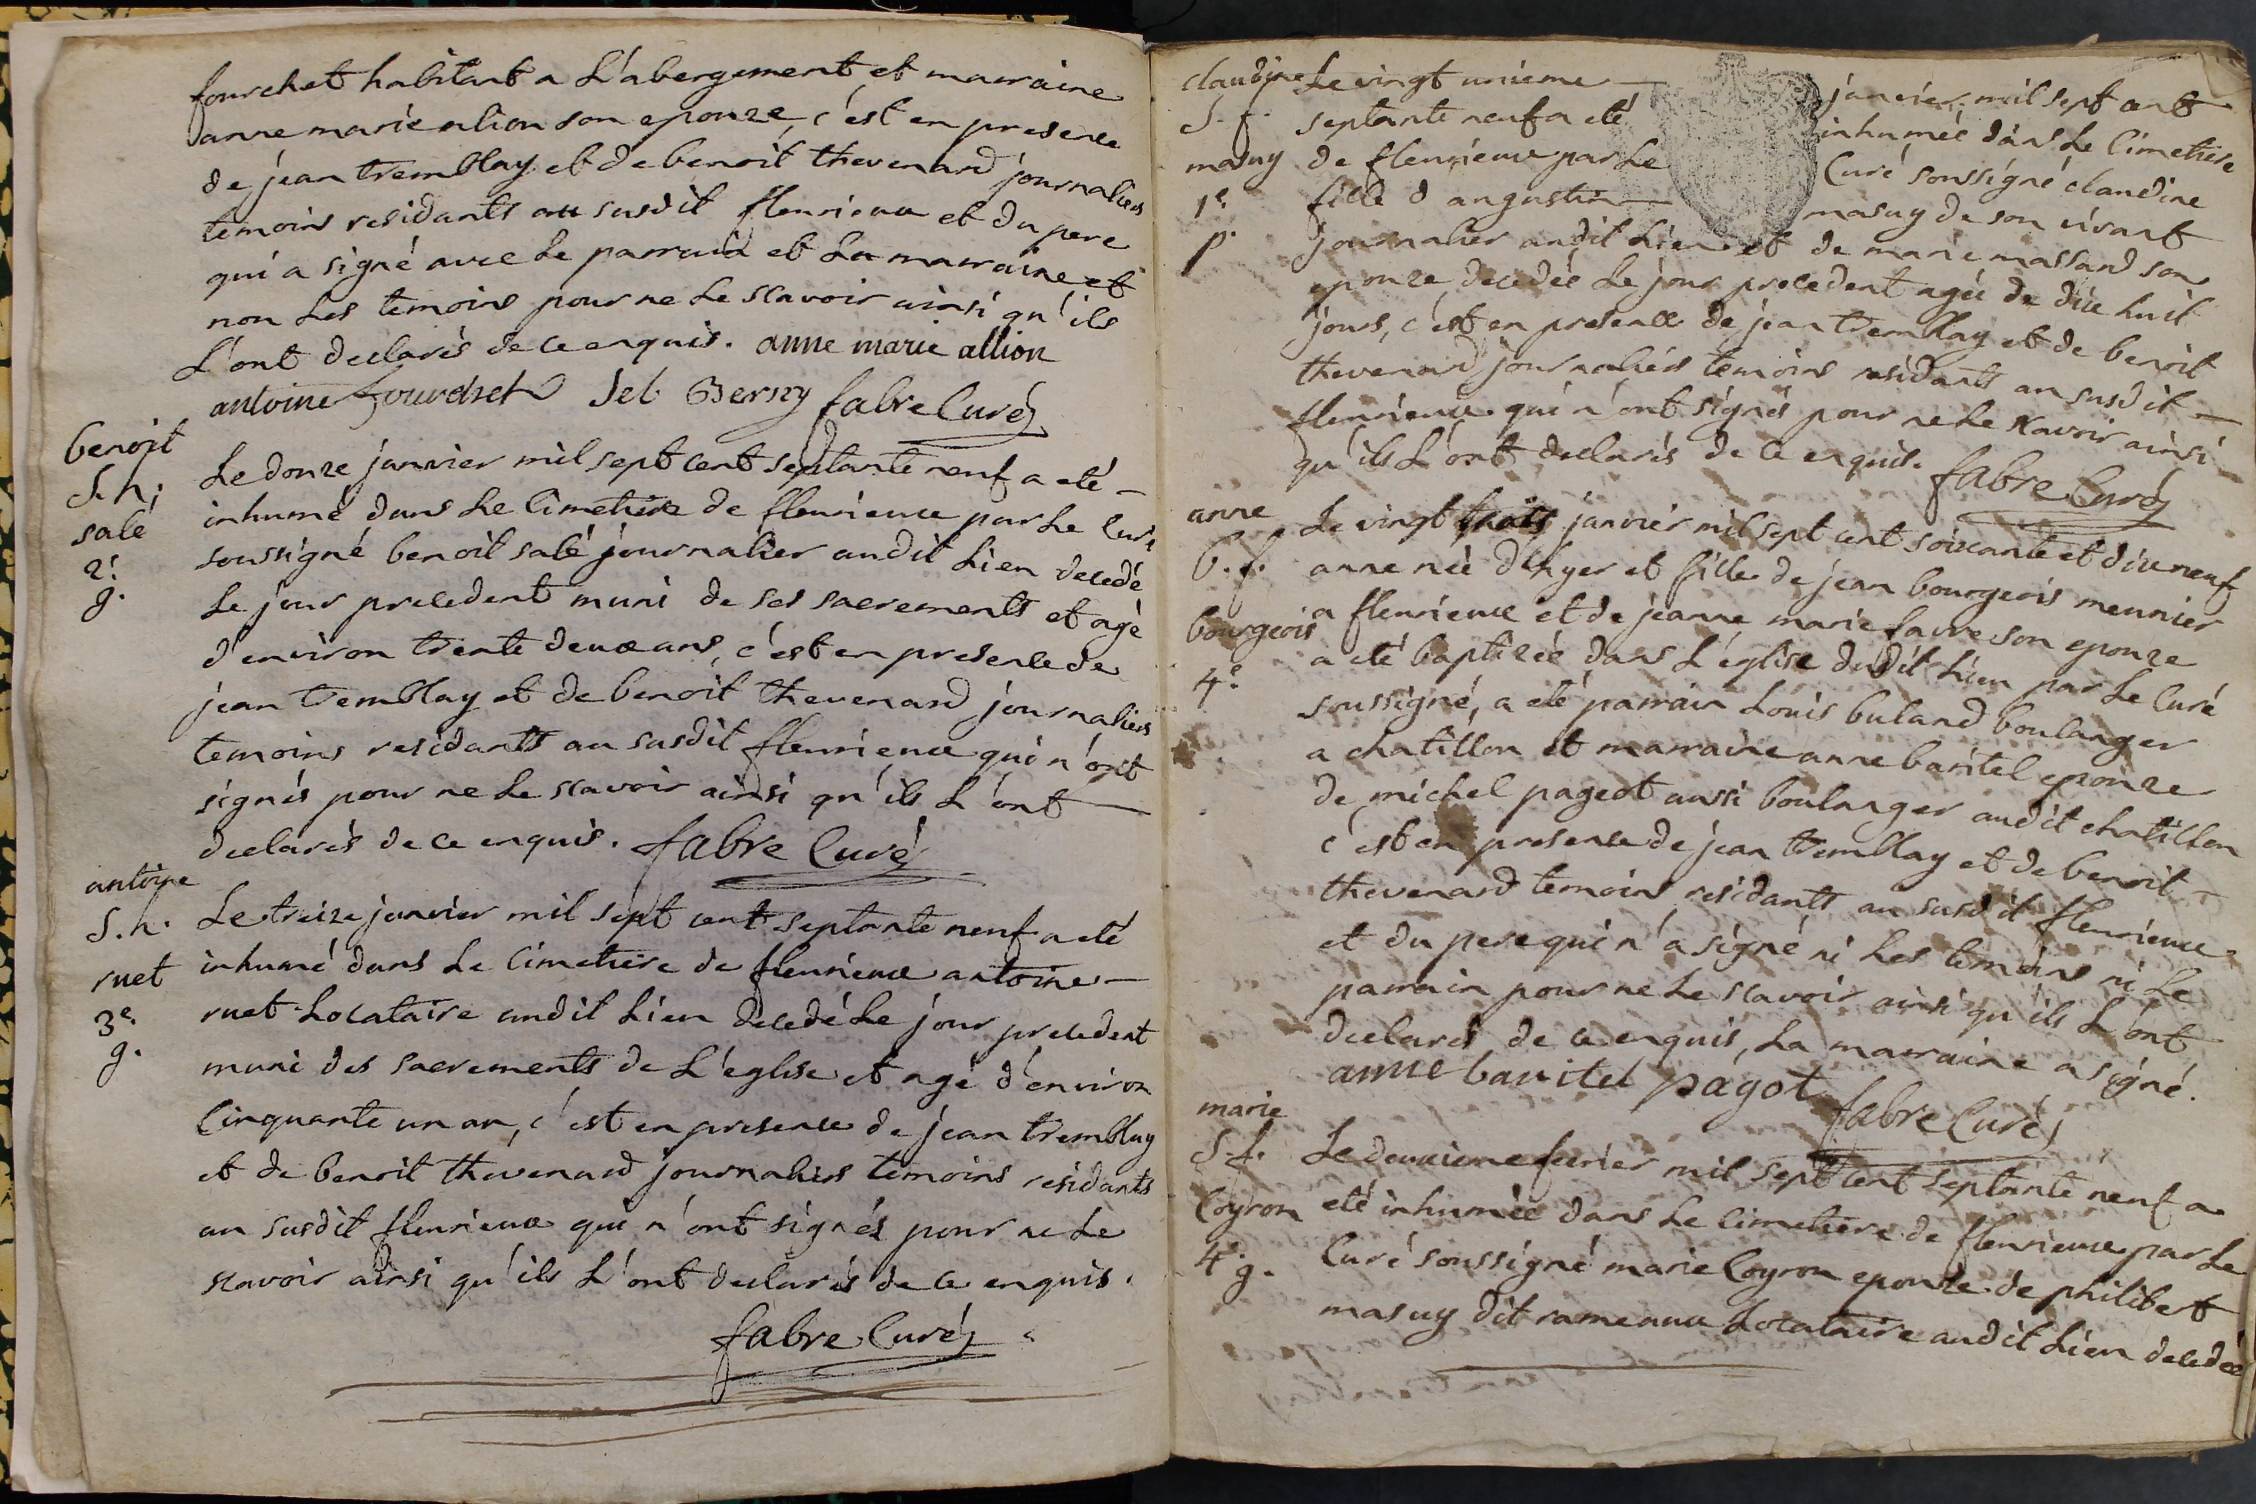 fourchet habitant a L'abergement et marraine
anne marie alion son epouze, c'est en presence
de jean tremblay et de benoit thevenard journaliers
temoins residants au susdit fleurieux et du pere
qui a signé avec le parrain et La marraine et
non Les temoins pour ne Le scavoir ainsi qu'ils
L'ont declarés de ce enquis. anne marie allion
antoine fourchet Berny fabre Curé
benoit
S. h.
salé
2e
g.
Le douze janvier mil sept cent septante neuf a eté
inhumé dans Le Cimetiere de fleurieux par Le Curé
soussigné benoit salé journalier audit Lieu decedé
Le jour precedent muni de ses sacrements et agé
d'environ trente deux ans, c'est en presence de
jean tremblay et de benoit thevenard journaliers
temoins residants au susdit fleurieux qui n'ont
signés pour ne Le scavoir ainsi qu'ils L'ont
declarés de ce enquis. fabre Curé
antoine
S. h.
ruet
3e
g.
Le treize janvier mil sept cent septante neuf a eté
inhumé dans Le Cimetiere de fleurieux antoine
ruet Locataire audit Lieu decedé Le jour precedent
muni des sacrements de L'eglise et agé d'environ
Cinquante un an, c'est en presence de jean tremblay
et de benoit thevenard journaliers temoins residants
au susdit fleurieux qui n'ont signés pour ne Le
scavoir ainsi qu'ils L'ont declarés de ce enquis.
fabre Curé
claudine
S. f.
masuy
1e
p.
Le vingt unieme janvier mil sept cent
septante neuf a eté inhumée dans Le Cimetiere
de fleurieux par Le Curé soussigné claudine
fille d'augustin masuy de son vivant
journalier audit Lieu et de marie massard son
epouze decedée Le jour precedent agée de dix huit
jours, c'est en presence de jean tremblay et de benoit
thevenard journaliers temoins residants au susdit
fleurieux qui n'ont signés pour ne Le scavoir ainsi
qu'ils L'ont declarés de ce enquis. fabre Curé
anne
b. f.
bourgeois
4e
Le vingt trois janvier mil sept cent soixante et dix neuf
anne née d'hyer et fille de jean bourgeois meunier
a fleurieux et de jeanne marie favre son epouze
a eté baptizée dans L'eglise dudit Lieu par Le Curé
soussigné, a eté parrain Louis buland boulanger
a chatillon et marraine anne baritel epouze
de michel pageot aussi boulanger audit chatillon
c'est en presence de jean tremblay et de benoit
thevenard temoins residants au susdit fleurieux
et du pere qui n'a signé ni Les temoins ni Le
parrain pour ne Le scavoir ainsi qu'ils L'ont
declarés de ce enquis, La marraine a signé.
anne bavitel pagot
fabre Curé
marie
S. f.
Coyron
4e
g.
Le deuxieme fevrier mil sept cent septante neuf a
eté inhumée dans Le cimetiere de fleurieux par Le
Curé soussigné marie Coyron epouze de philibert
masuy dit rameaux Locataire audit Lieu decedée